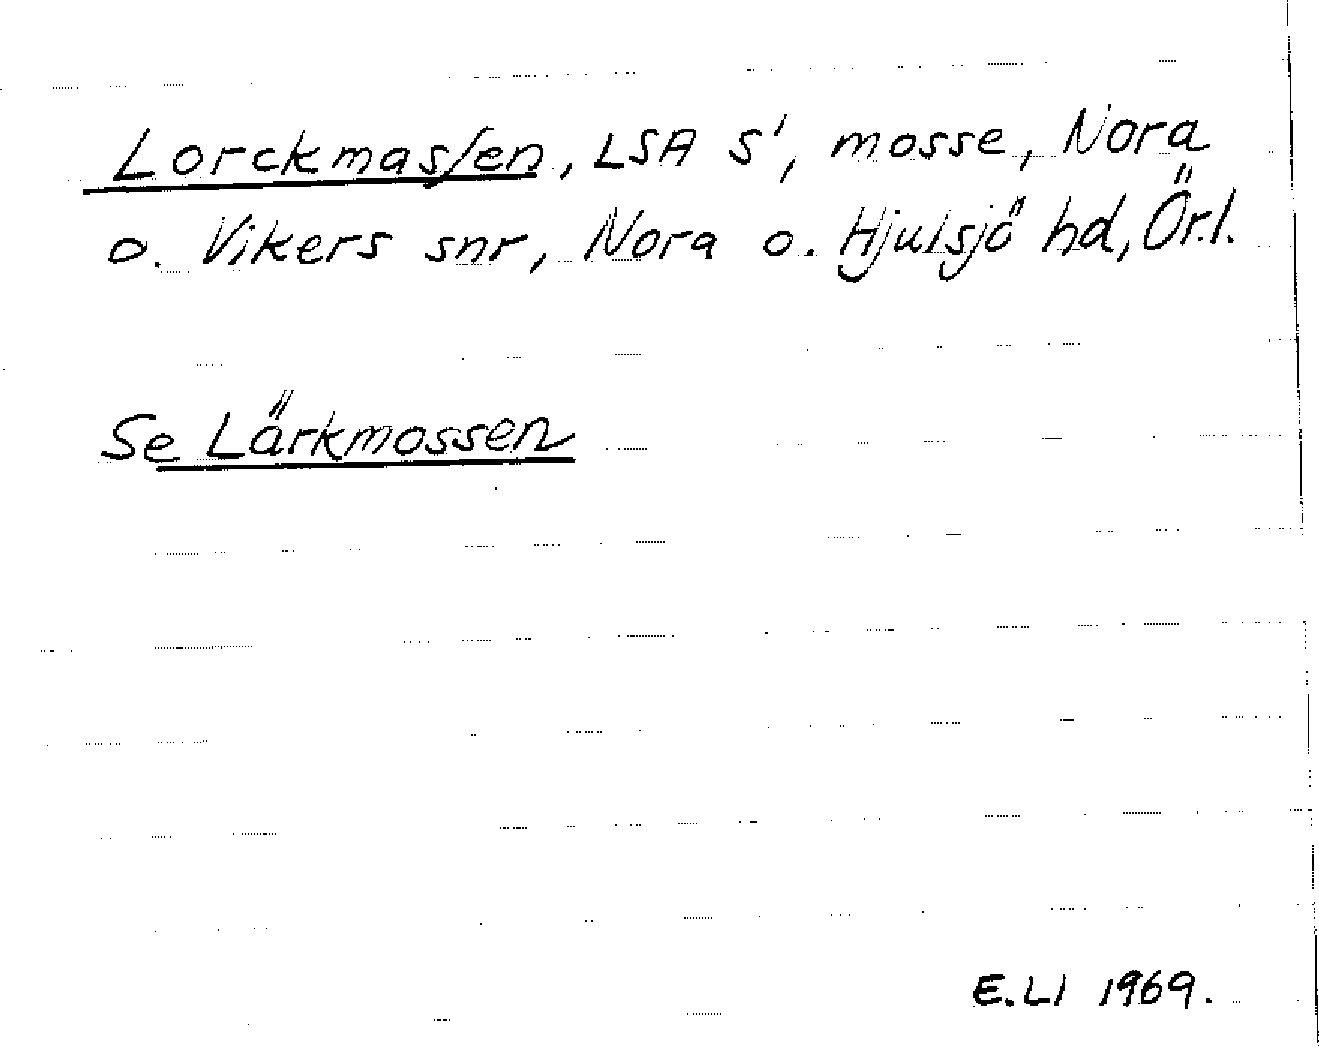 Lorckmasſen, LSA S', mosse, Nora
o. Vikers snr, Nora o. Hjulsjö hd, Ör.l.
Se Lärkmossen
E.LI 1969.